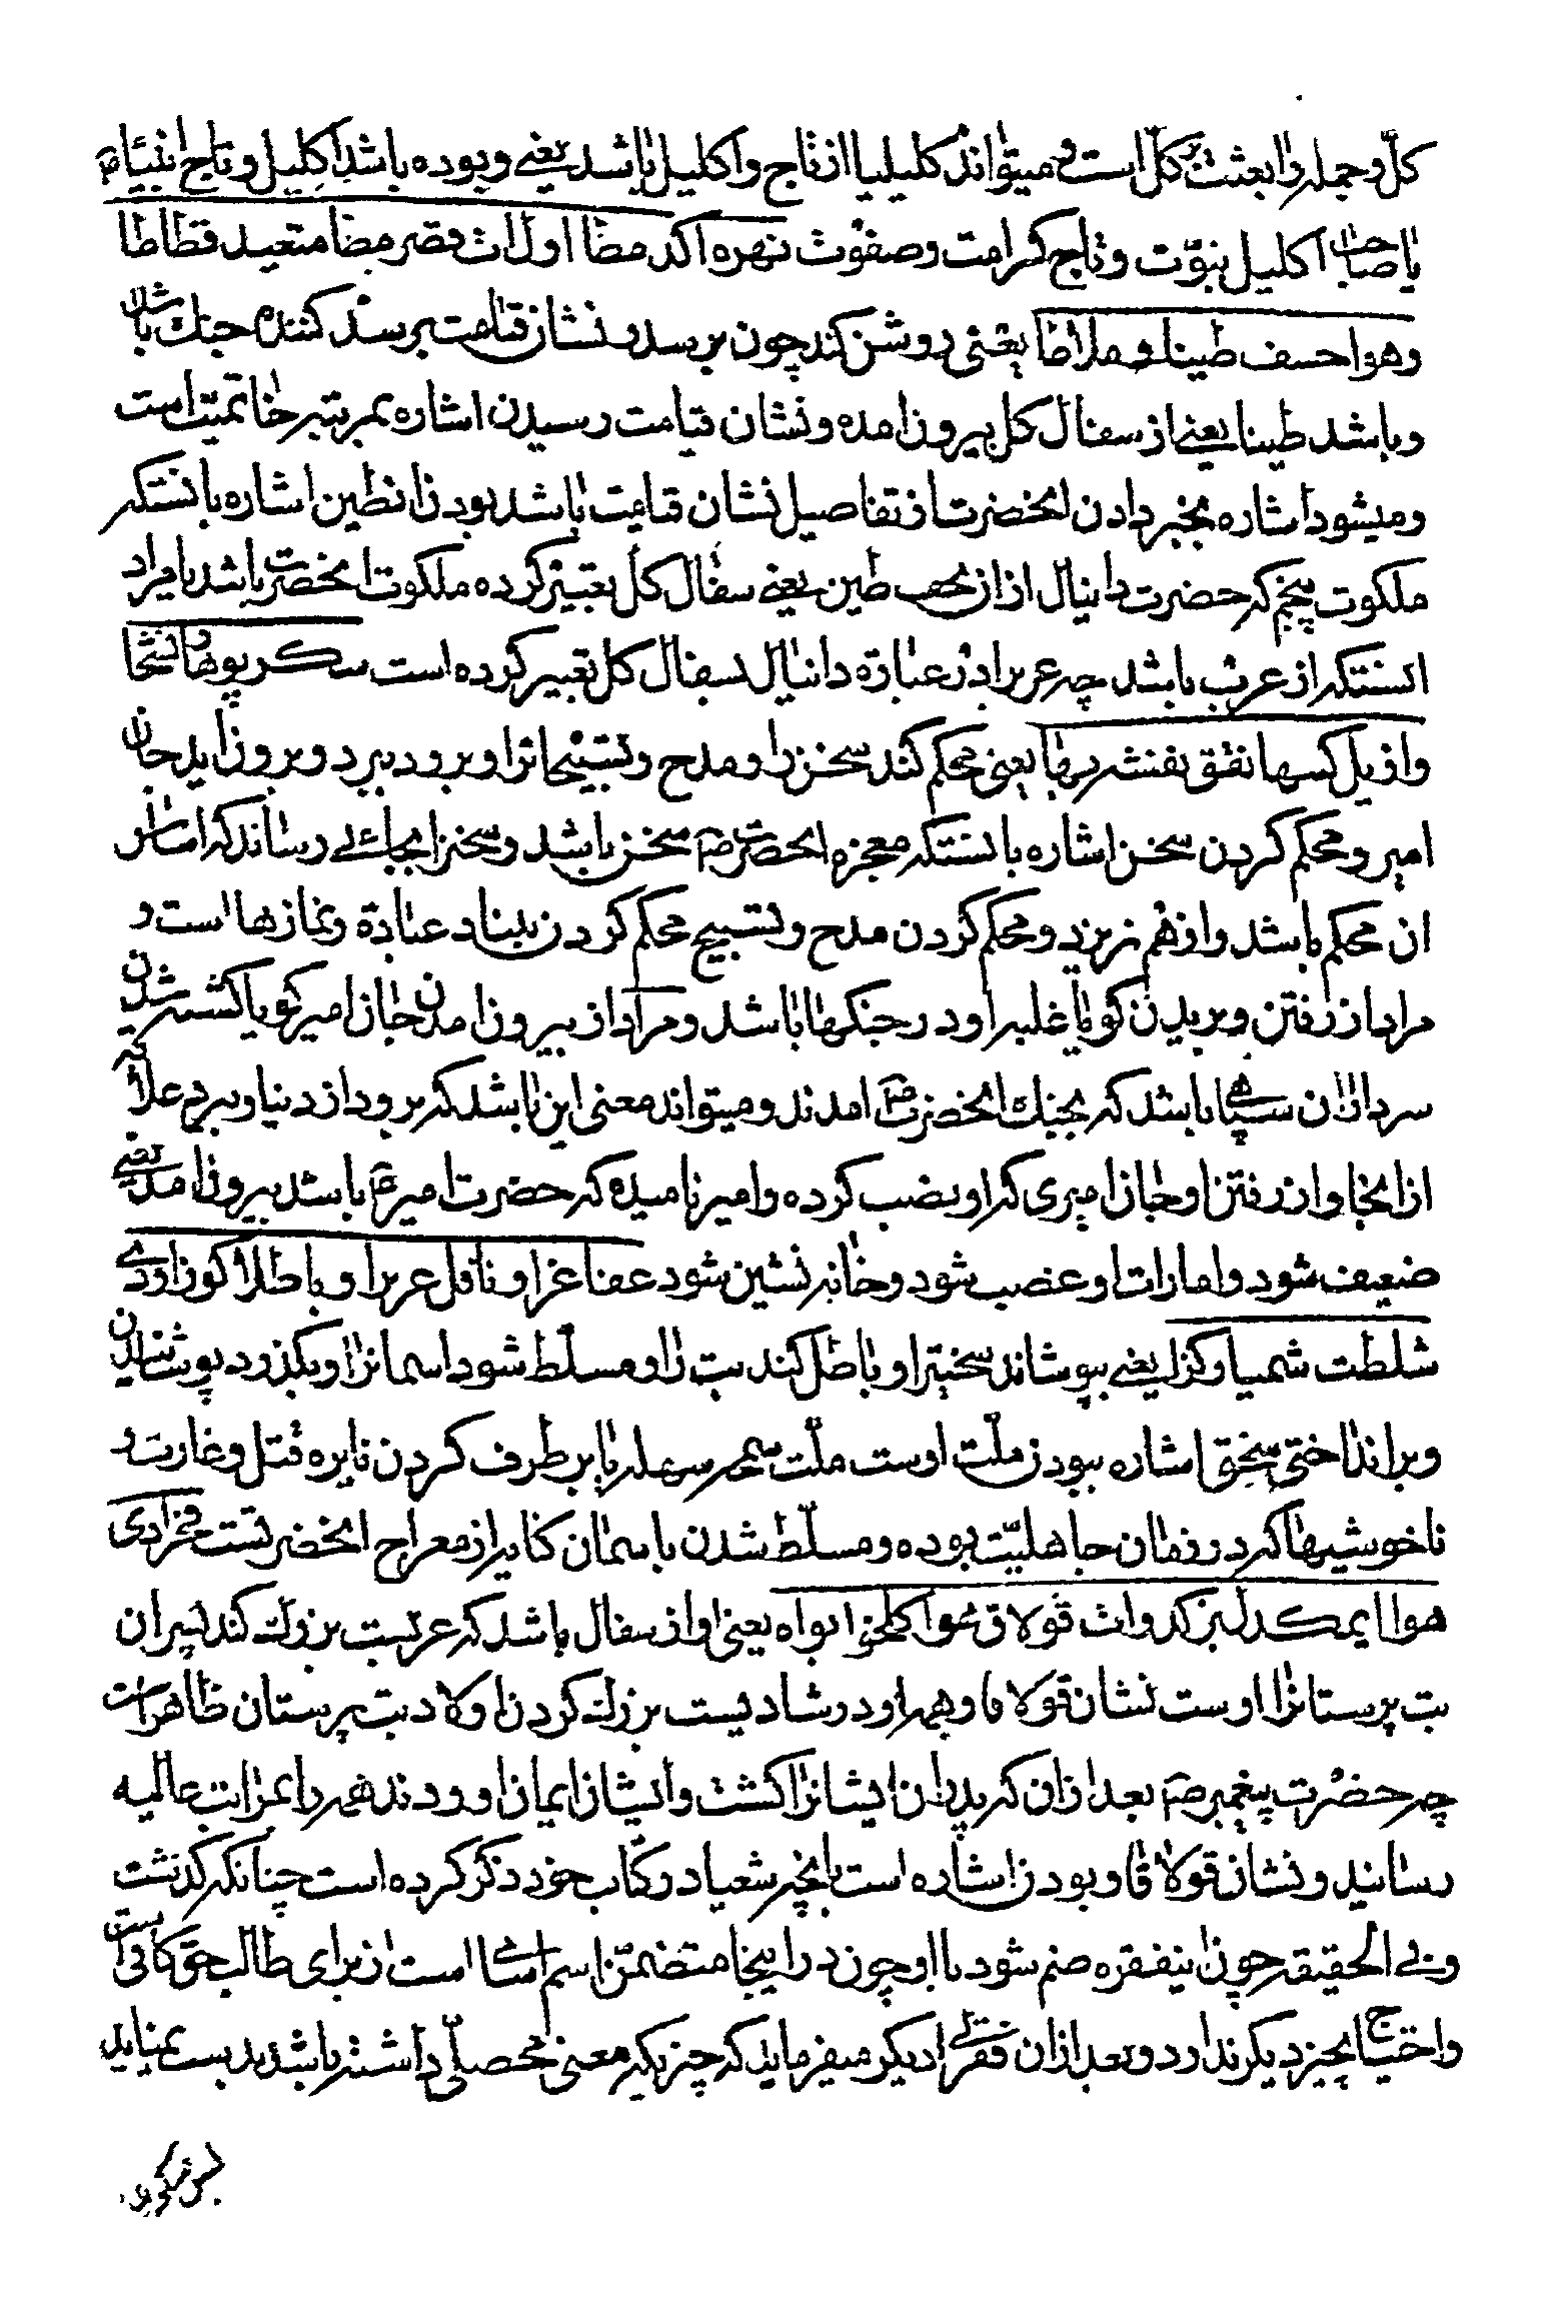 کل و جمله را بعثت بر کل است و میتواند کلیلیا از تاج و اکلیل باشد یعنی و بوده باشد اکلیل و تاج انبیاء
یا صاحب اکلیل نبوّت و تاج کرامت و صفوت نهره اکد مضا اولات وقصر مضا متعید قطاطا
وهوا حسف طینا و ملاطا یعنی روشن کند چون برسد و نشان قیامت برسد کننده جنك باشد
و باشد طینا یعنی از سفال کل بیرون امده و نشان قیامت رسیدن اشاره بمرتبه خاتمیت است
و میشود اشاره بخبر دادن انحضرت از تفاصیل نشان قیامت باشد بودن از طین اشاره بانستکه
ملکوت پنجم که حضرت دانیال از ان بخسب طین یعنی سفال کل تعبیر کرده ملکوت انحضرت باشد یا مراد
انستکه از عرب باشد چه عرب را در عبارة دانیال بسفال کل تعبیر کرده است سکر پوها تشحا
وازیل کسها نفق نفشه بها یعنی محکم کند سخن را و مدح و تسبیحاترا و برود ببرد و برون اید جان
امیر و محکم کردن سخن اشاره بانستکه معجزه انحضرت ص سخن باشد و سخنرا بجائی رساند که اساس
ان محکم باشد و از هم نریزد و محکم کردن مدح و تسبیح محکم کردن بنیاد عبادة و نمازها است و
مراد از رفتن و بریدن کویا غلبه او در جنکها باشد و مراد از بیرون امدن جان امیر کویا کشته شدن
سرداران سپاه باشد که بجنك انحضرت ص امدند و میتواند معنی این باشد که برود از دنیا و ببرد علاقه
از اینجا و از رفتن او جان امیری که او نصب کرده و امیر نامیده که حضرت امیر ع باشد بیرون امد یعنی
ضعیف شود و امارات او غصب شود و خانه نشین شود عفا غزا و نافل عربا و باطلا کوزا ودی
شلطت شمیا وکزا یعنی بپوشاند سختیرا و باطل کند بت را و مسلّط شود اسمانرا و بکذرد پوشانیدن
و برانداختن سختی اشاره ببودن ملّت اوست ملّت سمحه سهله یا برطرف کردن نایره قتل و غارت و
ناخوشیها که در زمان جاهلیّت بوده و مسلّط شدن باسمان کنایه از معراج انحضرتست فخرا دی
هوا ایمکدل بزکد وات قولاق عوا کلحو ابواه یعنی او از سفال باشد که عربست بزرك کند پسران
بت پرستانرا اوست نشان قولاقا و بهراو در شادیست بزرك کردن اولاد بت پرستان ظاهر است
چه حضرت پیغمبر ص بعد از ان که پدران ایشانرا کشت و ایشان ایمان اوردند همه را بمراتب عالیه
رسانید و نشان قولاقا و بودن اشاره است بانچه شعیا در کتاب خود ذکر کرده است چنانکه کذشت
و فی الحقیقه چون اینفقره ضم شود با او چون در اینجا متضمن اسم است از برای طالب حق کافی است
و احتیاج بچیز دیکر ندارد و بعد از ان فقرا دیکر میفرماید که چیزیکه معنی محصلّی داشته باشد بدست نمیاید